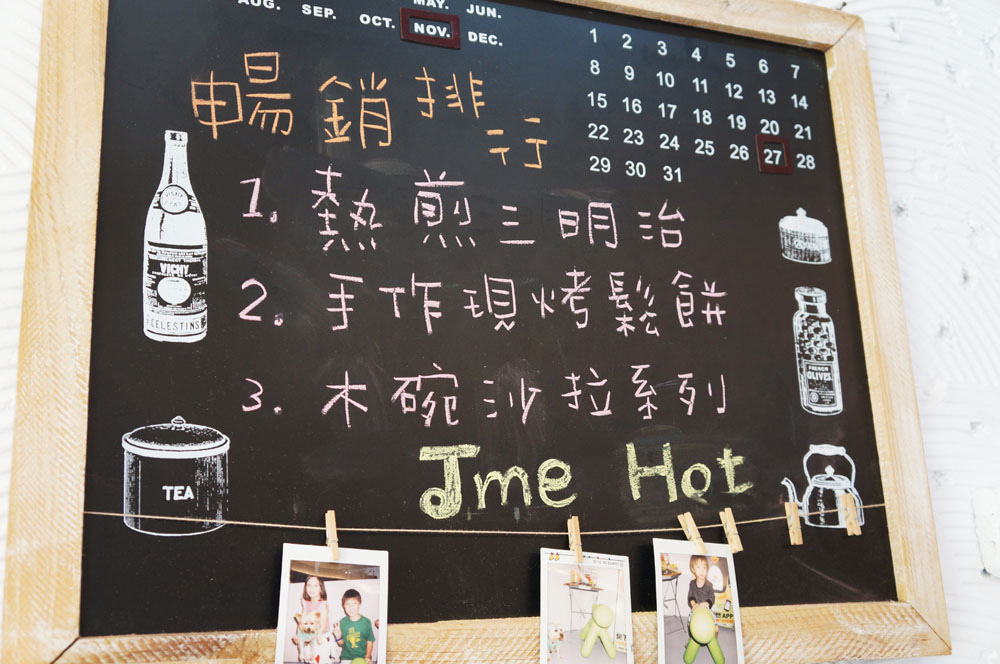 AUG. SEP. OCT. NOV. DEC.
MAY. JUN.
1 2 3 4 5 6 7
8 9 10 11 12 13 14
15 16 17 18 19 20 21
22 23 24 25 26 27 28
29 30 31
暢銷排行
1. 熱煎三明治
2. 手作現烤鬆餅
3. 木碗沙拉系列
Jme Hot
VICHY
CELESTINS
TEA
FRENCH
OLIVES